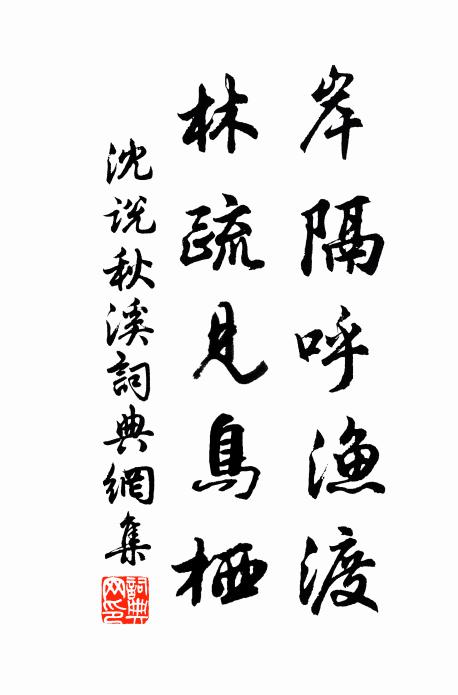 岸隔呼漁渡
林疏見鳥栖
沈说秋溪詞典網集
詞典网印